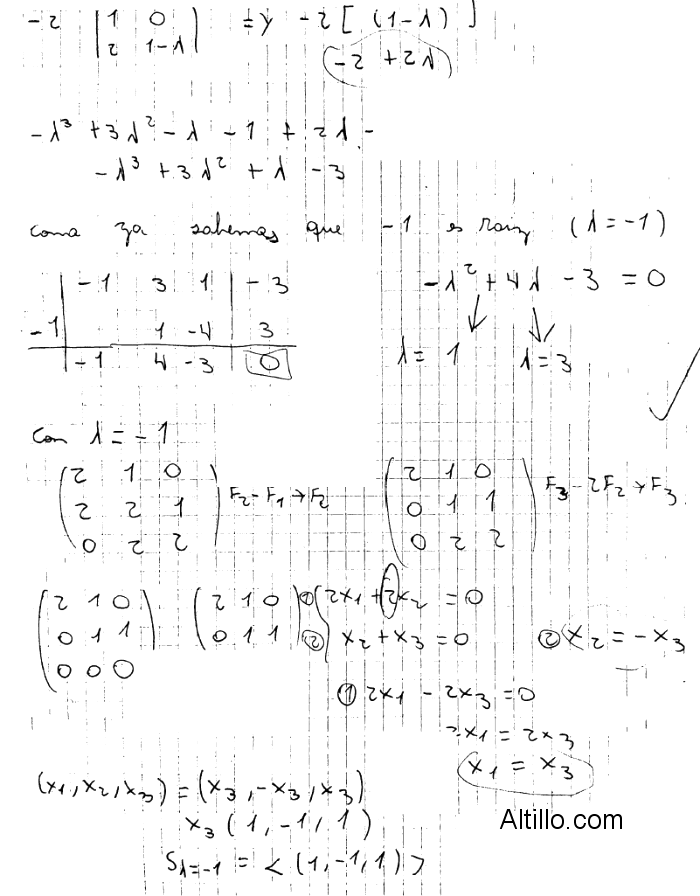 -2 | 1 0 | => -2 [ (1-λ) ]
| 2 1-λ | -2 + 2λ
-λ³ + 3λ² - λ - 1 + 2λ -
-λ³ + 3λ² + λ - 3
como ya sabemos que -1 es raiz (λ = -1)
-1 3 1 -3 -λ² + 4λ - 3 = 0
-1 1 -4 3
-1 4 -3 0 λ = 1 λ = 3
Con λ = -1
2 1 0 2 1 0
2 2 1 F2 - F1 → F2 0 1 1 F3 - 2F2 → F3
0 2 2 0 2 2
2 1 0 2 1 0 ① 2x1 + 2x2 = 0
0 1 1 0 1 1 ② x2 + x3 = 0 ② x2 = -x3
0 0 0
① 2x1 - 2x3 = 0
2x1 = 2x3
x1 = x3
(x1, x2, x3) = (x3, -x3, x3)
x3 (1, -1, 1)
Sλ=-1 = < (1, -1, 1) >
Altillo.com